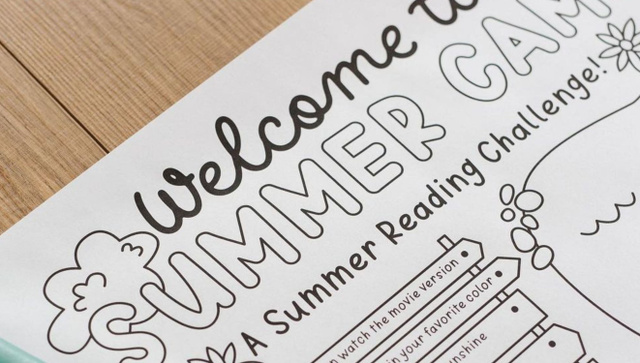 Welcome to
SUMMER CAM
A Summer Reading Challenge!
watch the movie version
in your favorite color